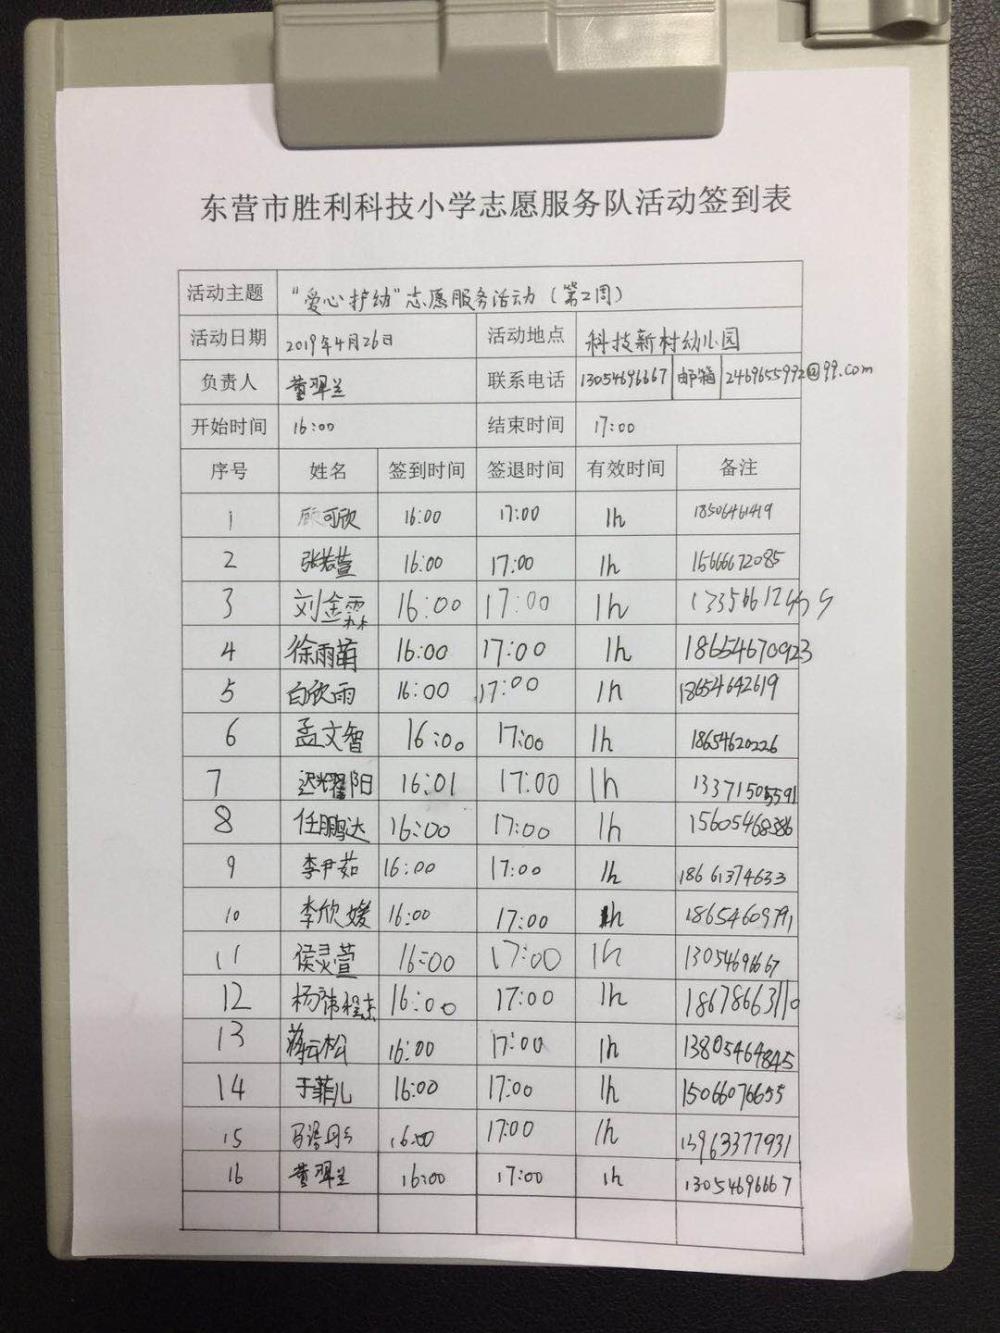 东营市胜利科技小学志愿服务队活动签到表
活动主题 “爱心护幼”志愿服务活动（第2周）
活动日期 2019年4月26日 活动地点 科技新村幼儿园
负责人 董翠兰 联系电话 13054696667 邮箱 2469655992@qq.com
开始时间 16:00 结束时间 17:00
序号 姓名 签到时间 签退时间 有效时间 备注
1 顾可欣 16:00 17:00 1h 18506461419
2 张若萱 16:00 17:00 1h 15666672085
3 刘金霖 16:00 17:00 1h
4 徐雨萌 16:00 17:00 1h 18654670923
5 白欣雨 16:00 17:00 1h 18654642619
6 孟文智 16:00 17:00 1h 18654620226
7 迟耀阳 16:01 17:00 1h 13371505591
8 任鹏达 16:00 17:00 1h 15605468386
9 李尹茹 16:00 17:00 1h 18661374633
10 李欣媛 16:00 17:00 1h 18654609791
11 侯灵萱 16:00 17:00 1h 13054696667
12 杨祎程杰 16:00 17:00 1h 18678663110
13 蒋云松 16:00 17:00 1h 13805464845
14 于菲儿 16:00 17:00 1h 15066076655
15 16:00 17:00 1h 13963377931
16 董翠兰 16:00 17:00 1h 13054696667